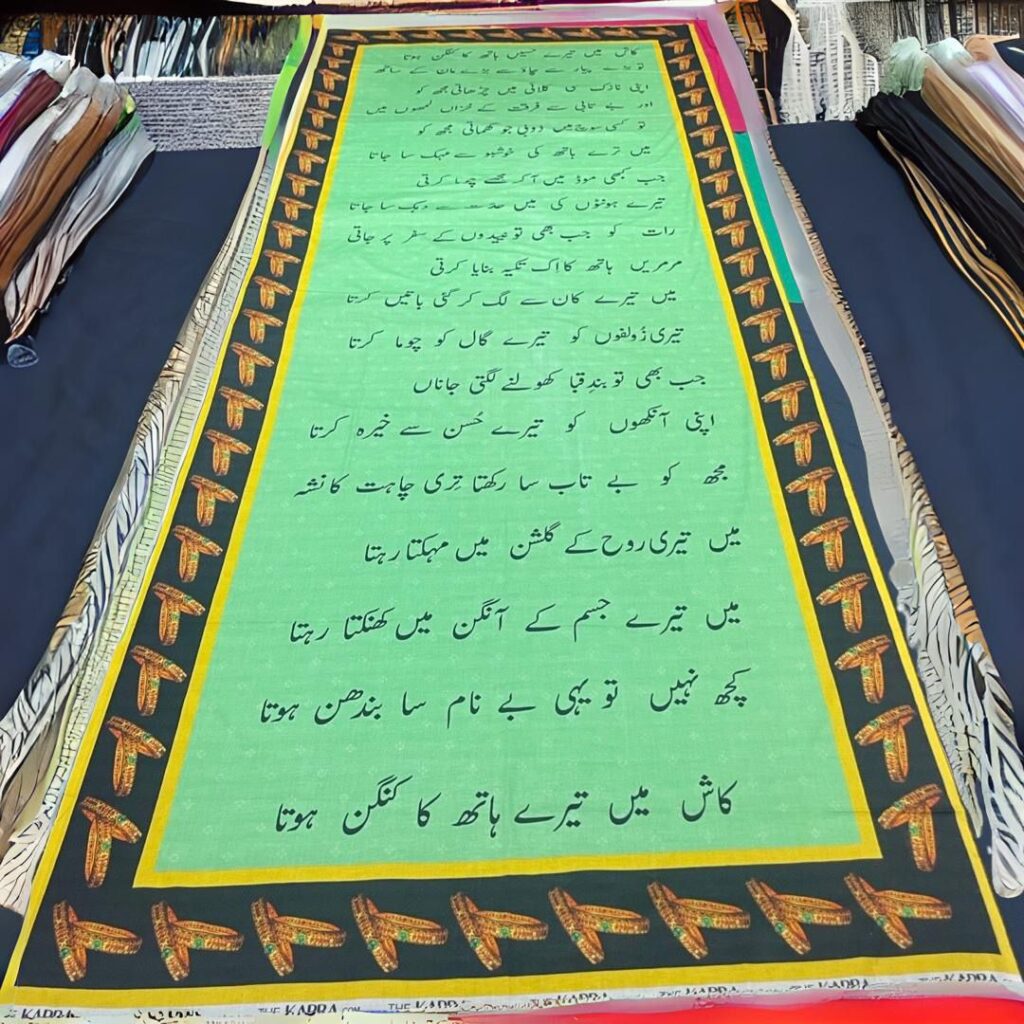 کاش میں تیرے حسیں ہاتھ کا کنگن ہوتا
تو بڑے پیار سے چاؤ سے بڑے مان کے ساتھ
اپنی نازک سی کلائی میں چڑھاتی مجھ کو
اور بے تابی سے فرقت کے خزاں لمحوں میں
تو کسی سوچ میں ڈوبی جو گھماتی مجھ کو
میں ترے ہاتھ کی خوشبو سے مہک سا جاتا
جب کبھی موڈ میں آ کر مجھے چوما کرتی
تیرے ہونٹوں کی میں حدت سے دہک سا جاتا
رات کو جب بھی تو نیندوں کے سفر پر جاتی
مرمریں ہاتھ کا اک تکیہ بنایا کرتی
میں تیرے کان سے لگ کر گئی باتیں کرتا
تیری زُولفوں کو تیرے گال کو چوما کرتا
جب بھی تو بندِ قبا کھولنے لگتی جاناں
اپنی آنکھوں کو تیرے حُسن سے خیرہ کرتا
مجھ کو بے تاب سا رکھتا تِری چاہت کا نشہ
میں تیری روح کے گلشن میں مہکتا رہتا
میں تیرے جسم کے آنگن میں کھنکتا رہتا
کچھ نہیں تو یہی بے نام سا بندھن ہوتا
کاش میں تیرے ہاتھ کا کنگن ہوتا
THE KAPRA.COM THE KAPRA THE KAPRA